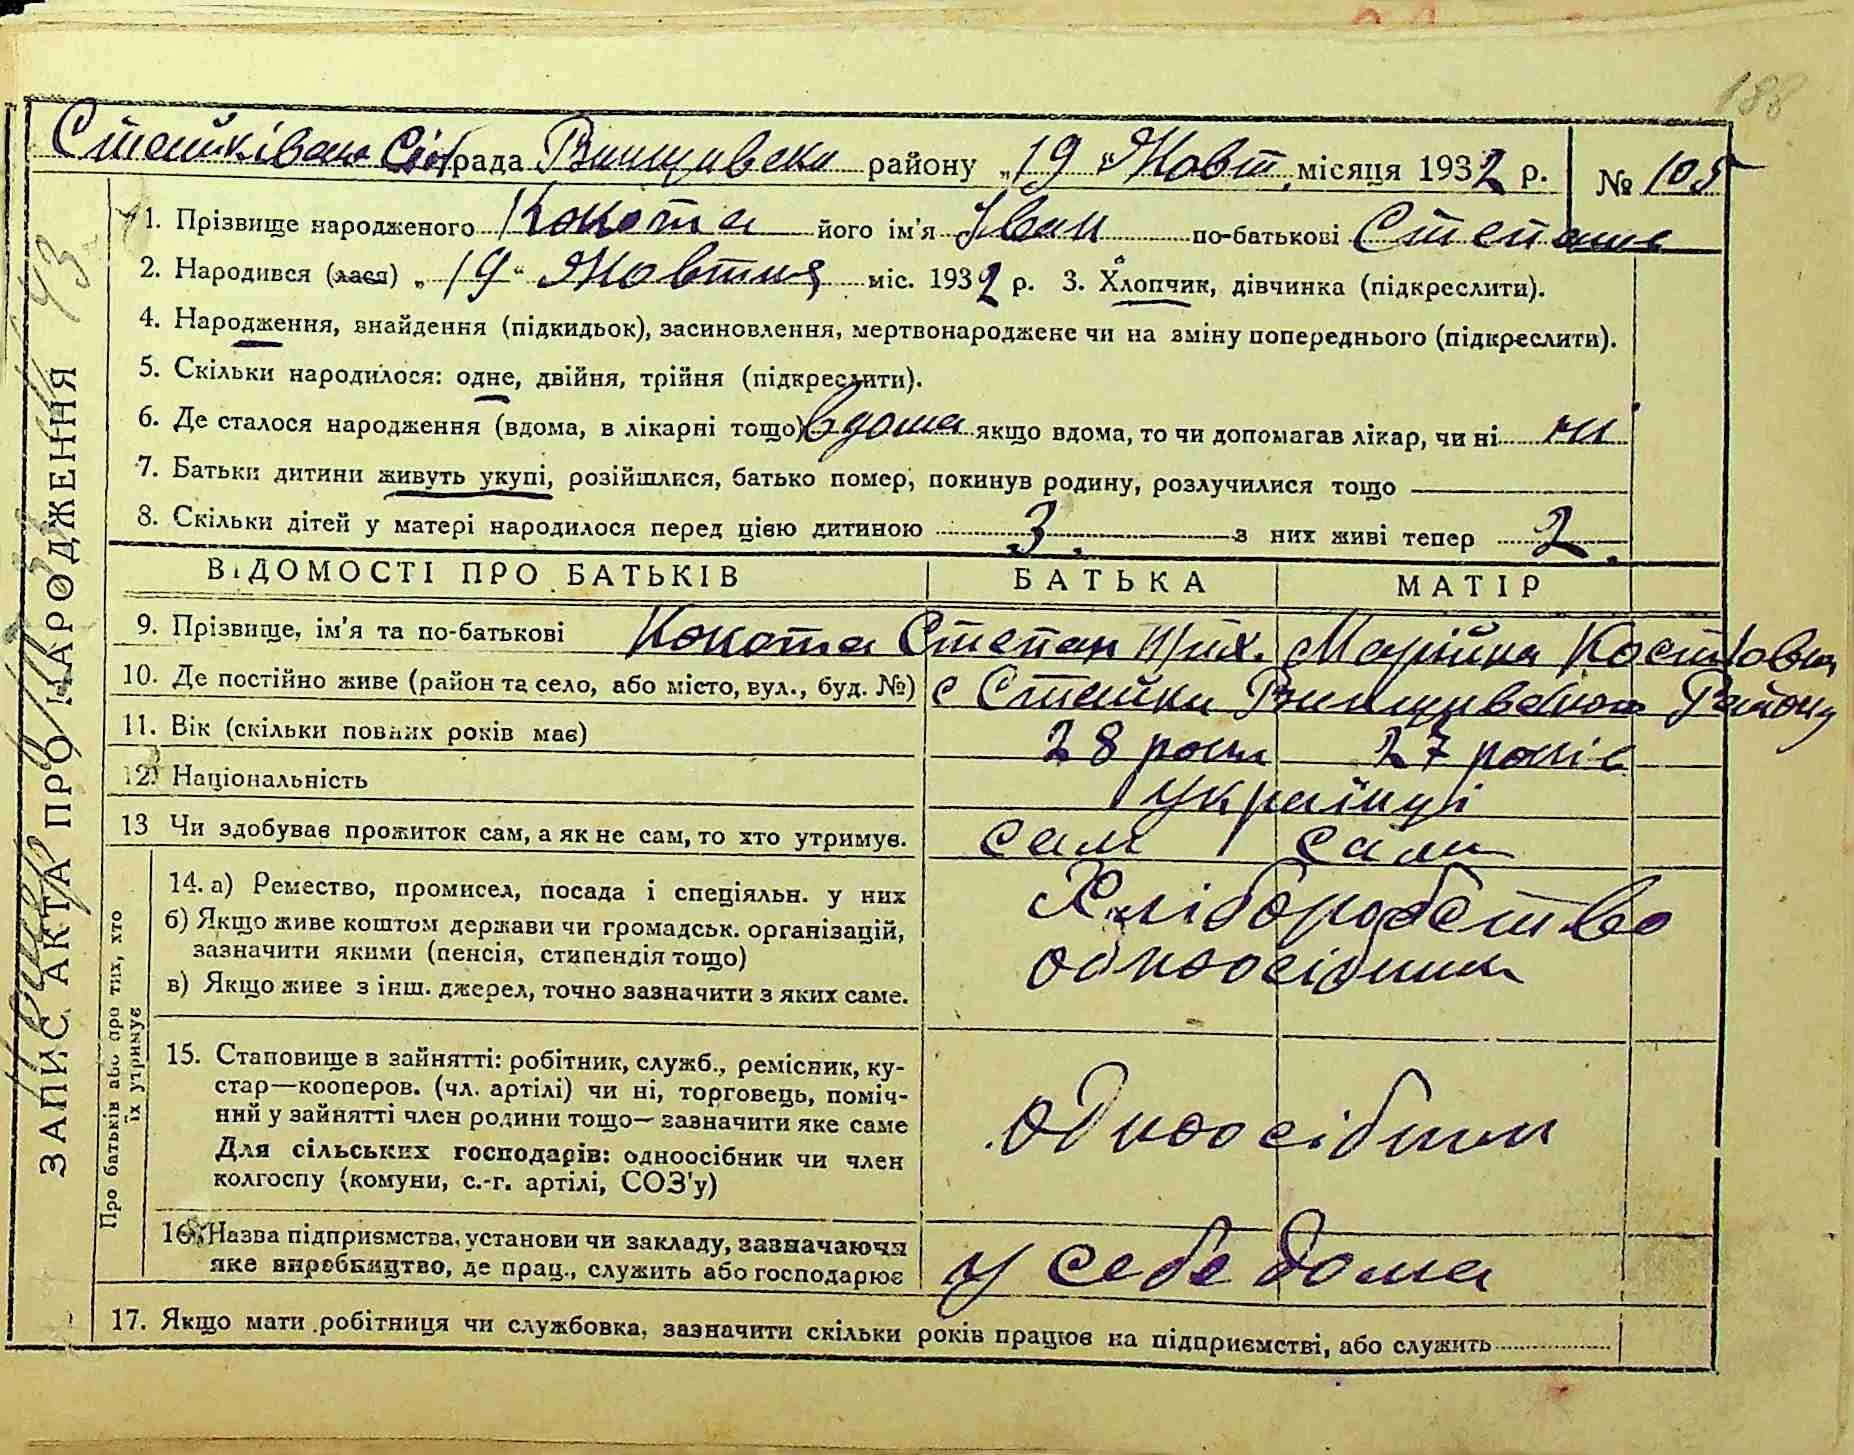 188
Стайківська Сільрада Ржищівськ району „19" Жовт. місяця 1932 р. № 105
1. Прізвище народженого Кокота його ім'я Іван по-батькові Степанов
2. Народився (лася) „19" Жовтня міс. 1932 р. 3. Хлопчик, дівчинка (підкреслити).
4. Народження, внайдення (підкидьок), засиновлення, мертвонароджене чи на зміну попереднього (підкреслити).
5. Скільки народилося: одне, двійня, трійня (підкреслити).
6. Де сталося народження (вдома, в лікарні тощо) вдома якщо вдома, то чи допомагав лікар, чи ні ні
7. Батьки дитини живуть укупі, розійшлися, батько помер, покинув родину, розлучилися тощо
8. Скільки дітей у матері народилося перед цією дитиною 3 з них живі тепер 2.
ВІДОМОСТІ ПРО БАТЬКІВ БАТЬКА МАТІР
9. Прізвище, ім'я та по-батькові Кокота Степан Мих. Марійка Костьовна
10. Де постійно живе (район та село, або місто, вул., буд. №) с Стайки Ржищівського Району
11. Вік (скільки повних років має) 28 роки 27 років
12. Національність українці
13 Чи здобуває прожиток сам, а як не сам, то хто утримує. сам сами
14. а) Ремество, промисел, посада і спеціяльн. у них Хліборобство
б) Якщо живе коштом держави чи громадськ. організацій,
зазначити якими (пенсія, стипендія тощо) одноосібники
в) Якщо живе з інш. джерел, точно зазначити з яких саме.
15. Становище в зайнятті: робітник, служб., ремісник, ку-
стар—кооперов. (чл. артілі) чи ні, торговець, поміч-
ний у зайнятті член родини тощо— зазначити яке саме одноосібники
Для сільських господарів: одноосібник чи член
колгоспу (комуни, с.-г. артілі, СОЗ'у)
16. Назва підприємства, установи чи закладу, зазначаючи
яке виробництво, де прац., служить або господарює у себе дома
17. Якщо мати робітниця чи службовка, зазначити скільки років працює на підприємстві, або служить
ЗАПИС АКТА ПРО НАРОДЖЕННЯ
Про батьків або про тих, хто
їх утримує